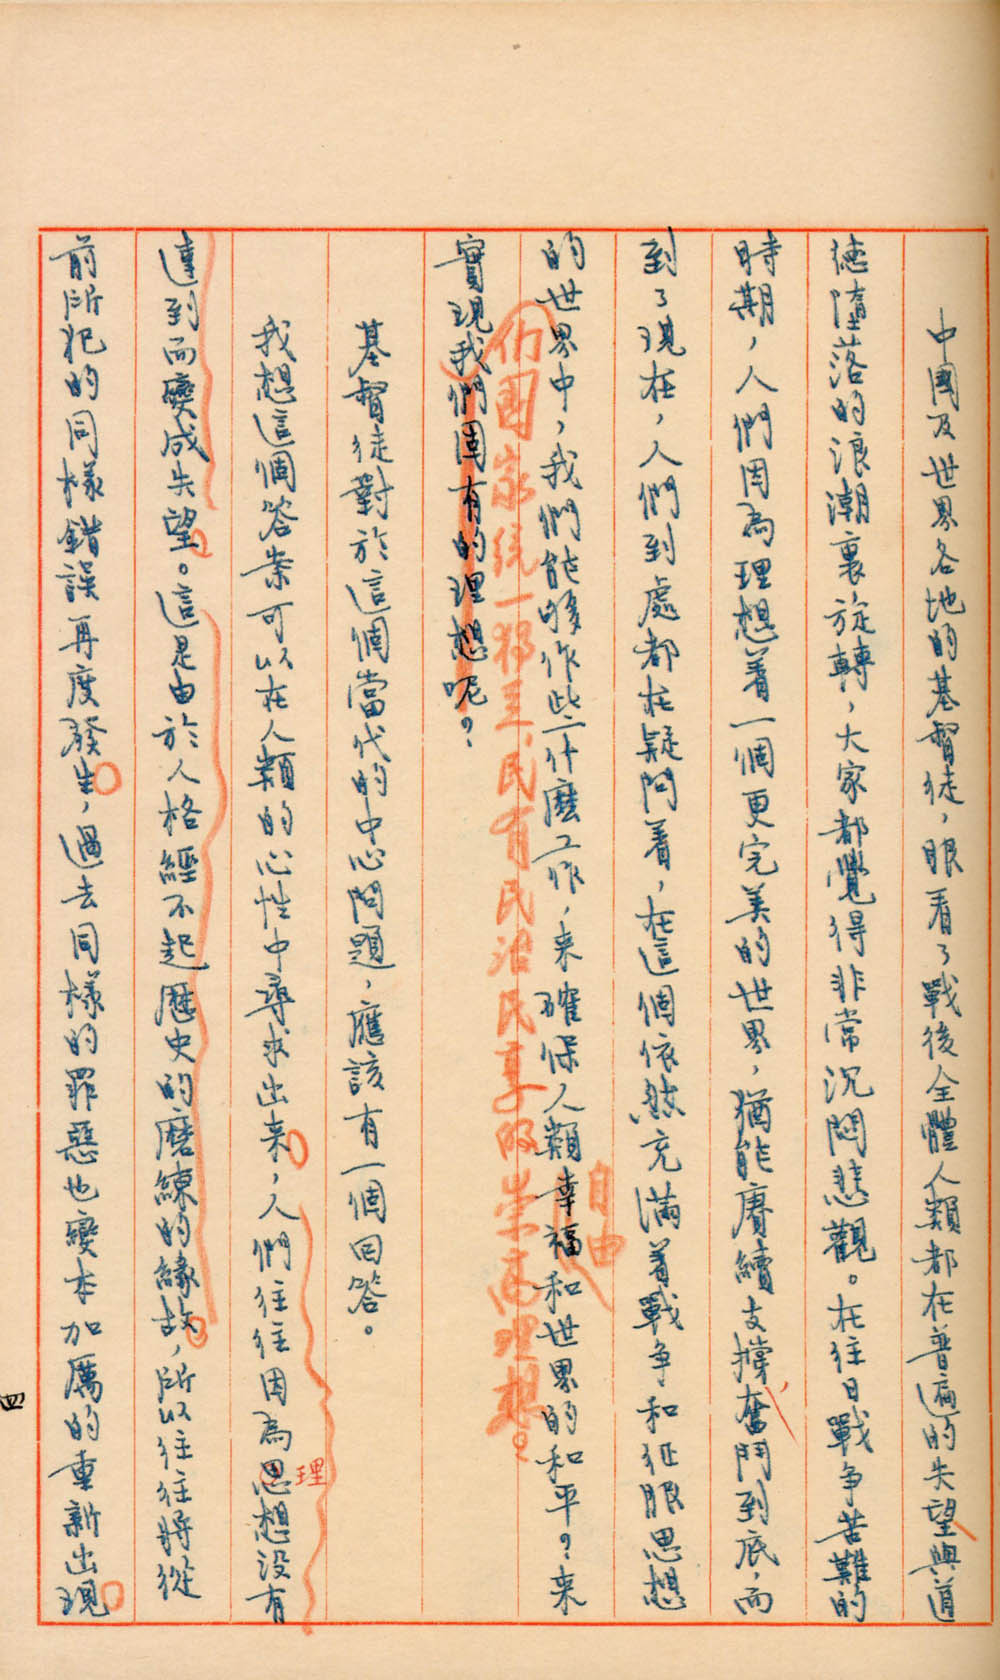 中國及世界各地的基督徒，眼看了戰後全體人類都在普遍的失望與道
德墮落的浪潮裏旋轉，大家都覺得非常沉悶悲觀。在往日戰爭苦難的
時期，人們因為理想着一個更完美的世界，猶能賡續支撐奮鬥到底，而
到了現在，人們到處都在疑問着，在這個依然充滿着戰爭和征服思想
自由
的世界中，我們能够作些什麼工作，来確保人類幸福和世界的和平？来
國家統一獨立民有民治民享的崇高理想。
實現我們固有的理想呢？
基督徒對於這個當代的中心問題，應該有一個回答。
我想這個答案可以在人類的心性中尋求出来，人們往往因為思想没有
理
達到而變成失望。這是由於人格經不起歷史的磨練的緣故，所以往往將從
前所犯的同樣錯誤再度發生，過去同樣的罪惡也變本加厲的重新出現
四